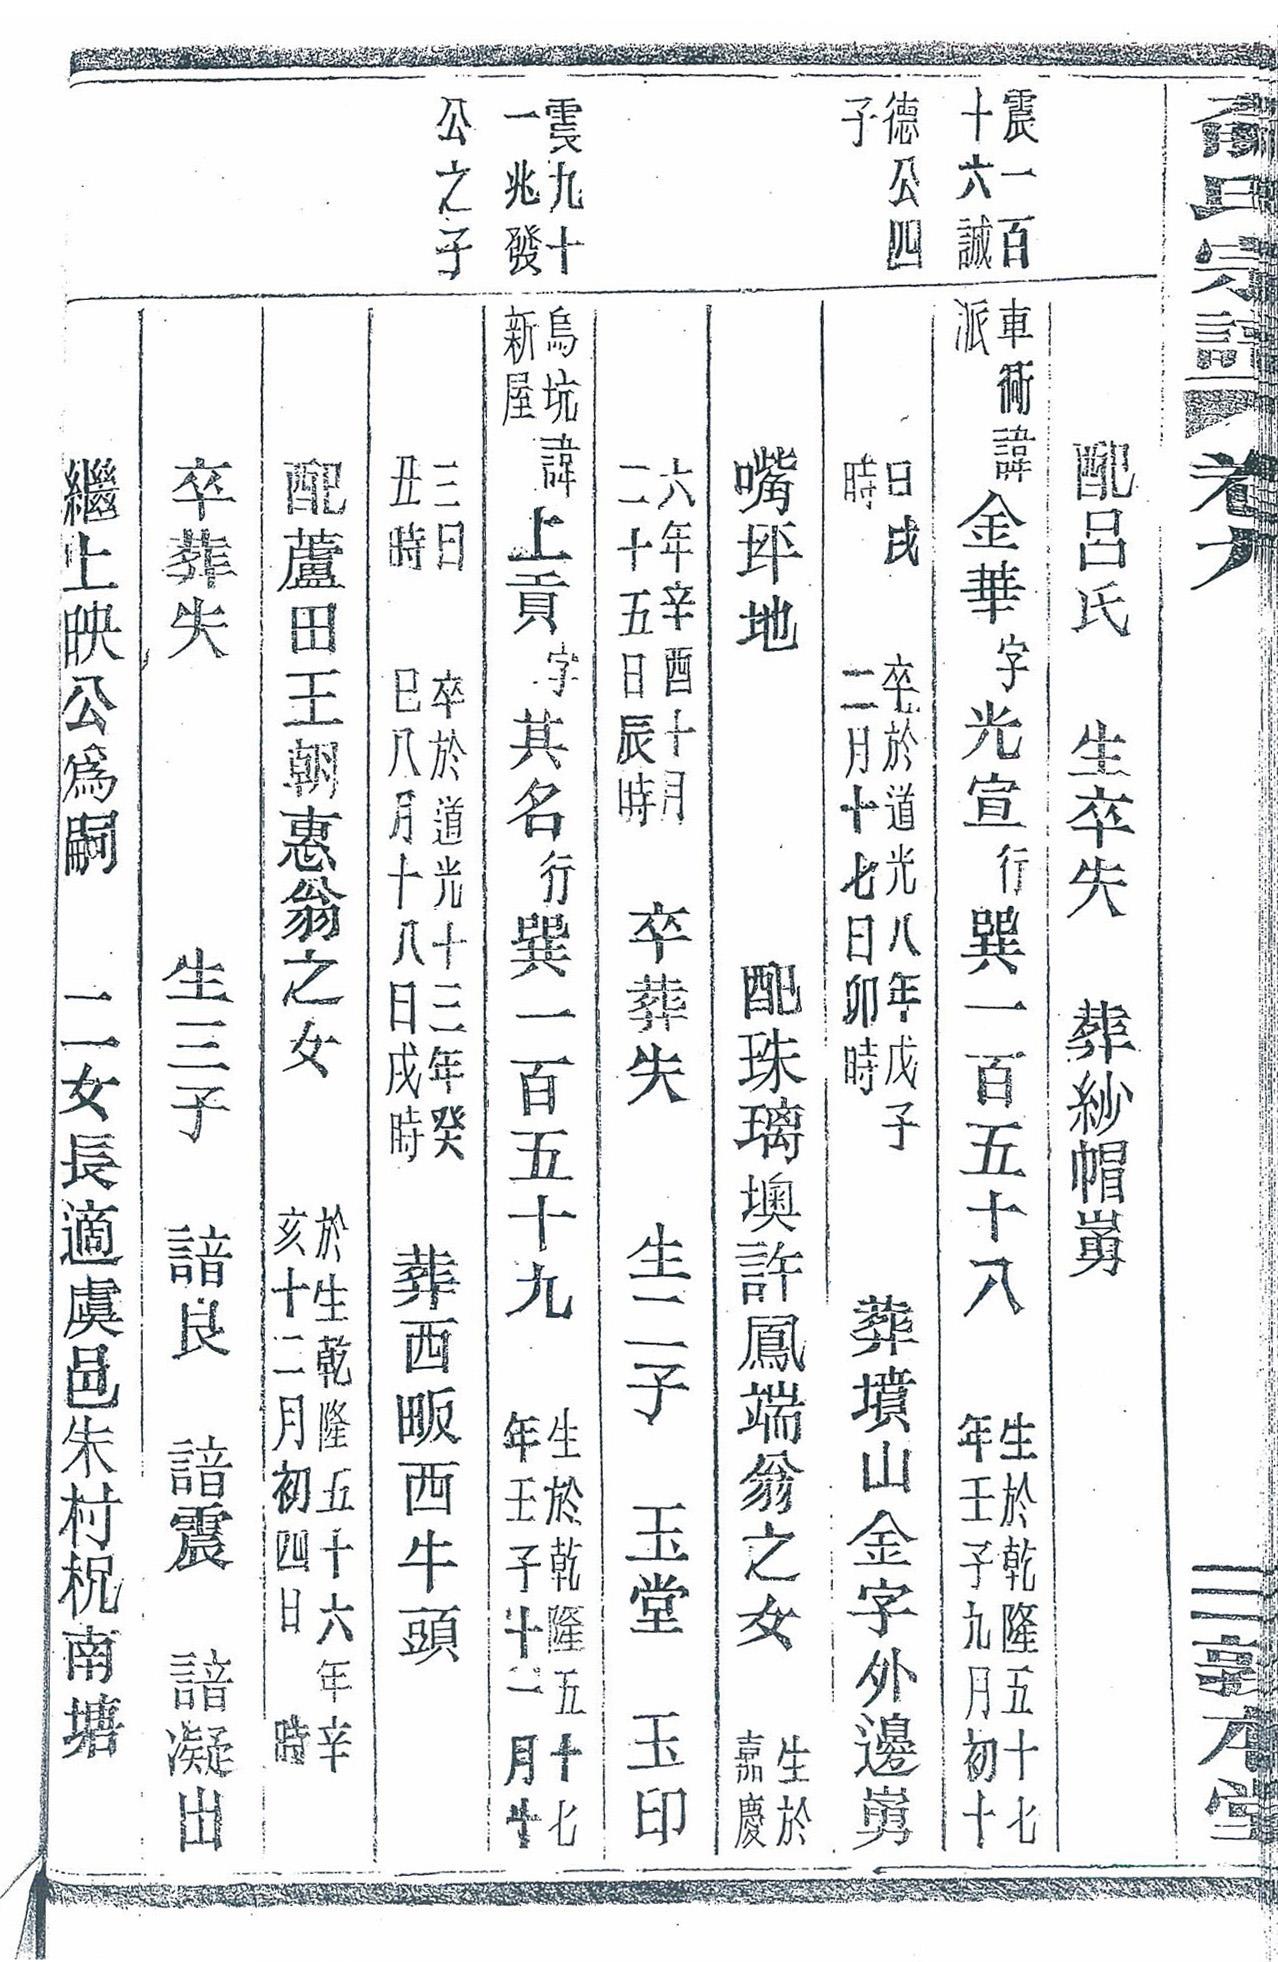 俞氏宗譜 卷九 三 敦本堂
配呂氏 生卒失 葬紗帽嵏
震一百十六誠德公四子
車衕派諱金華字光宣行巽一百五十八 生於乾隆五十七年壬子九月初十
日戌時 卒於道光八年戊子二月十七日卯時 葬墳山金字外邊嵏
嘴坪地 配珠璃墺許鳳端翁之女 生於嘉慶
六年辛酉十月二十五日辰時 卒葬失 生二子 玉堂 玉印
震九十一兆發公之子
烏坑新屋諱上貢字其名行巽一百五十九 生於乾隆五十七年壬子十一月廿
三日丑時 卒於道光十三年癸巳八月十八日戌時 葬西畈西牛頭
配蘆田王朝惠翁之女 於生乾隆五十六年辛亥十二月初四日 時
卒葬失 生三子 諳良 諳震 諳凝出
繼上映公為嗣 二女長適虞邑朱村柷南塘